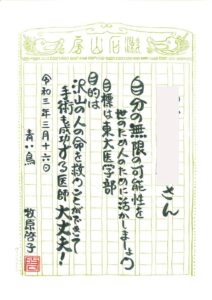 漱石山房
さん
自分の無限の可能性を
世のため人のために活かしましょう
目標は東大医学部
目的は
沢山の人の命を救うことができて
手術も成功する医師 大丈夫!
令和三年三月十六日
青い鳥
牧原啓子